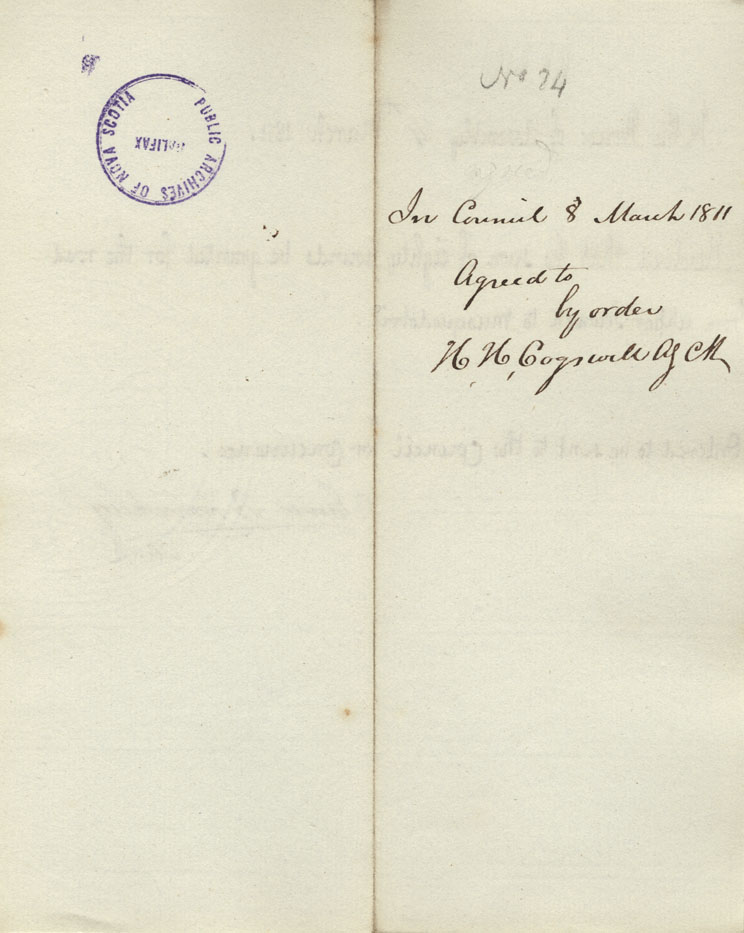 PUBLIC ARCHIVES OF NOVA SCOTIA
HALIFAX
No 24
In Council 8 March 1811
Agreed to
by order
H H Cogswell